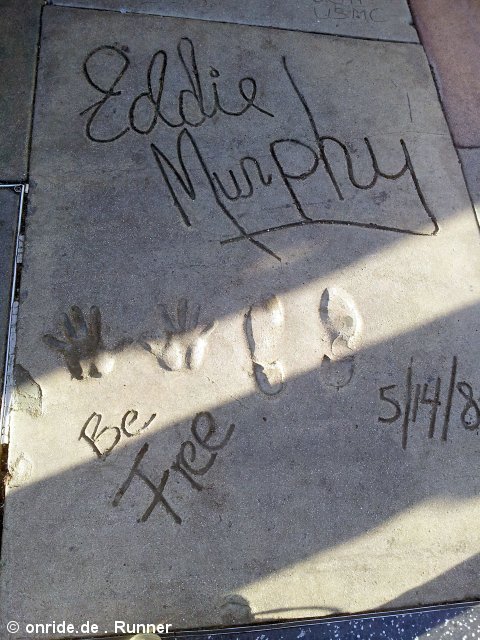 USMC
Eddie
Murphy
5/14/8
Be
Free
© onride.de . Runner